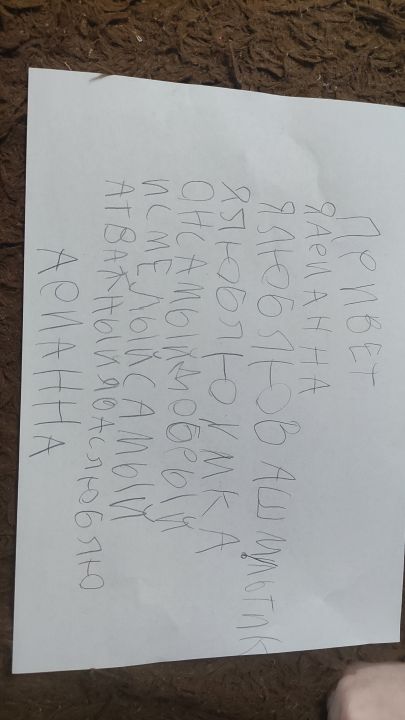 ПРИВЕТ
ЯАРИАННА
ЯЛЮБЛЮВАШМУЛЬТИК
ЯЛЮБЛЮУМКА
ОНСАМЫЙДОБРЫЙ
ИСМЕЛЫЙСАМЫЙ
АТВАЖНЫЙЯВАСЛЮБЛЮ
АРИАННА